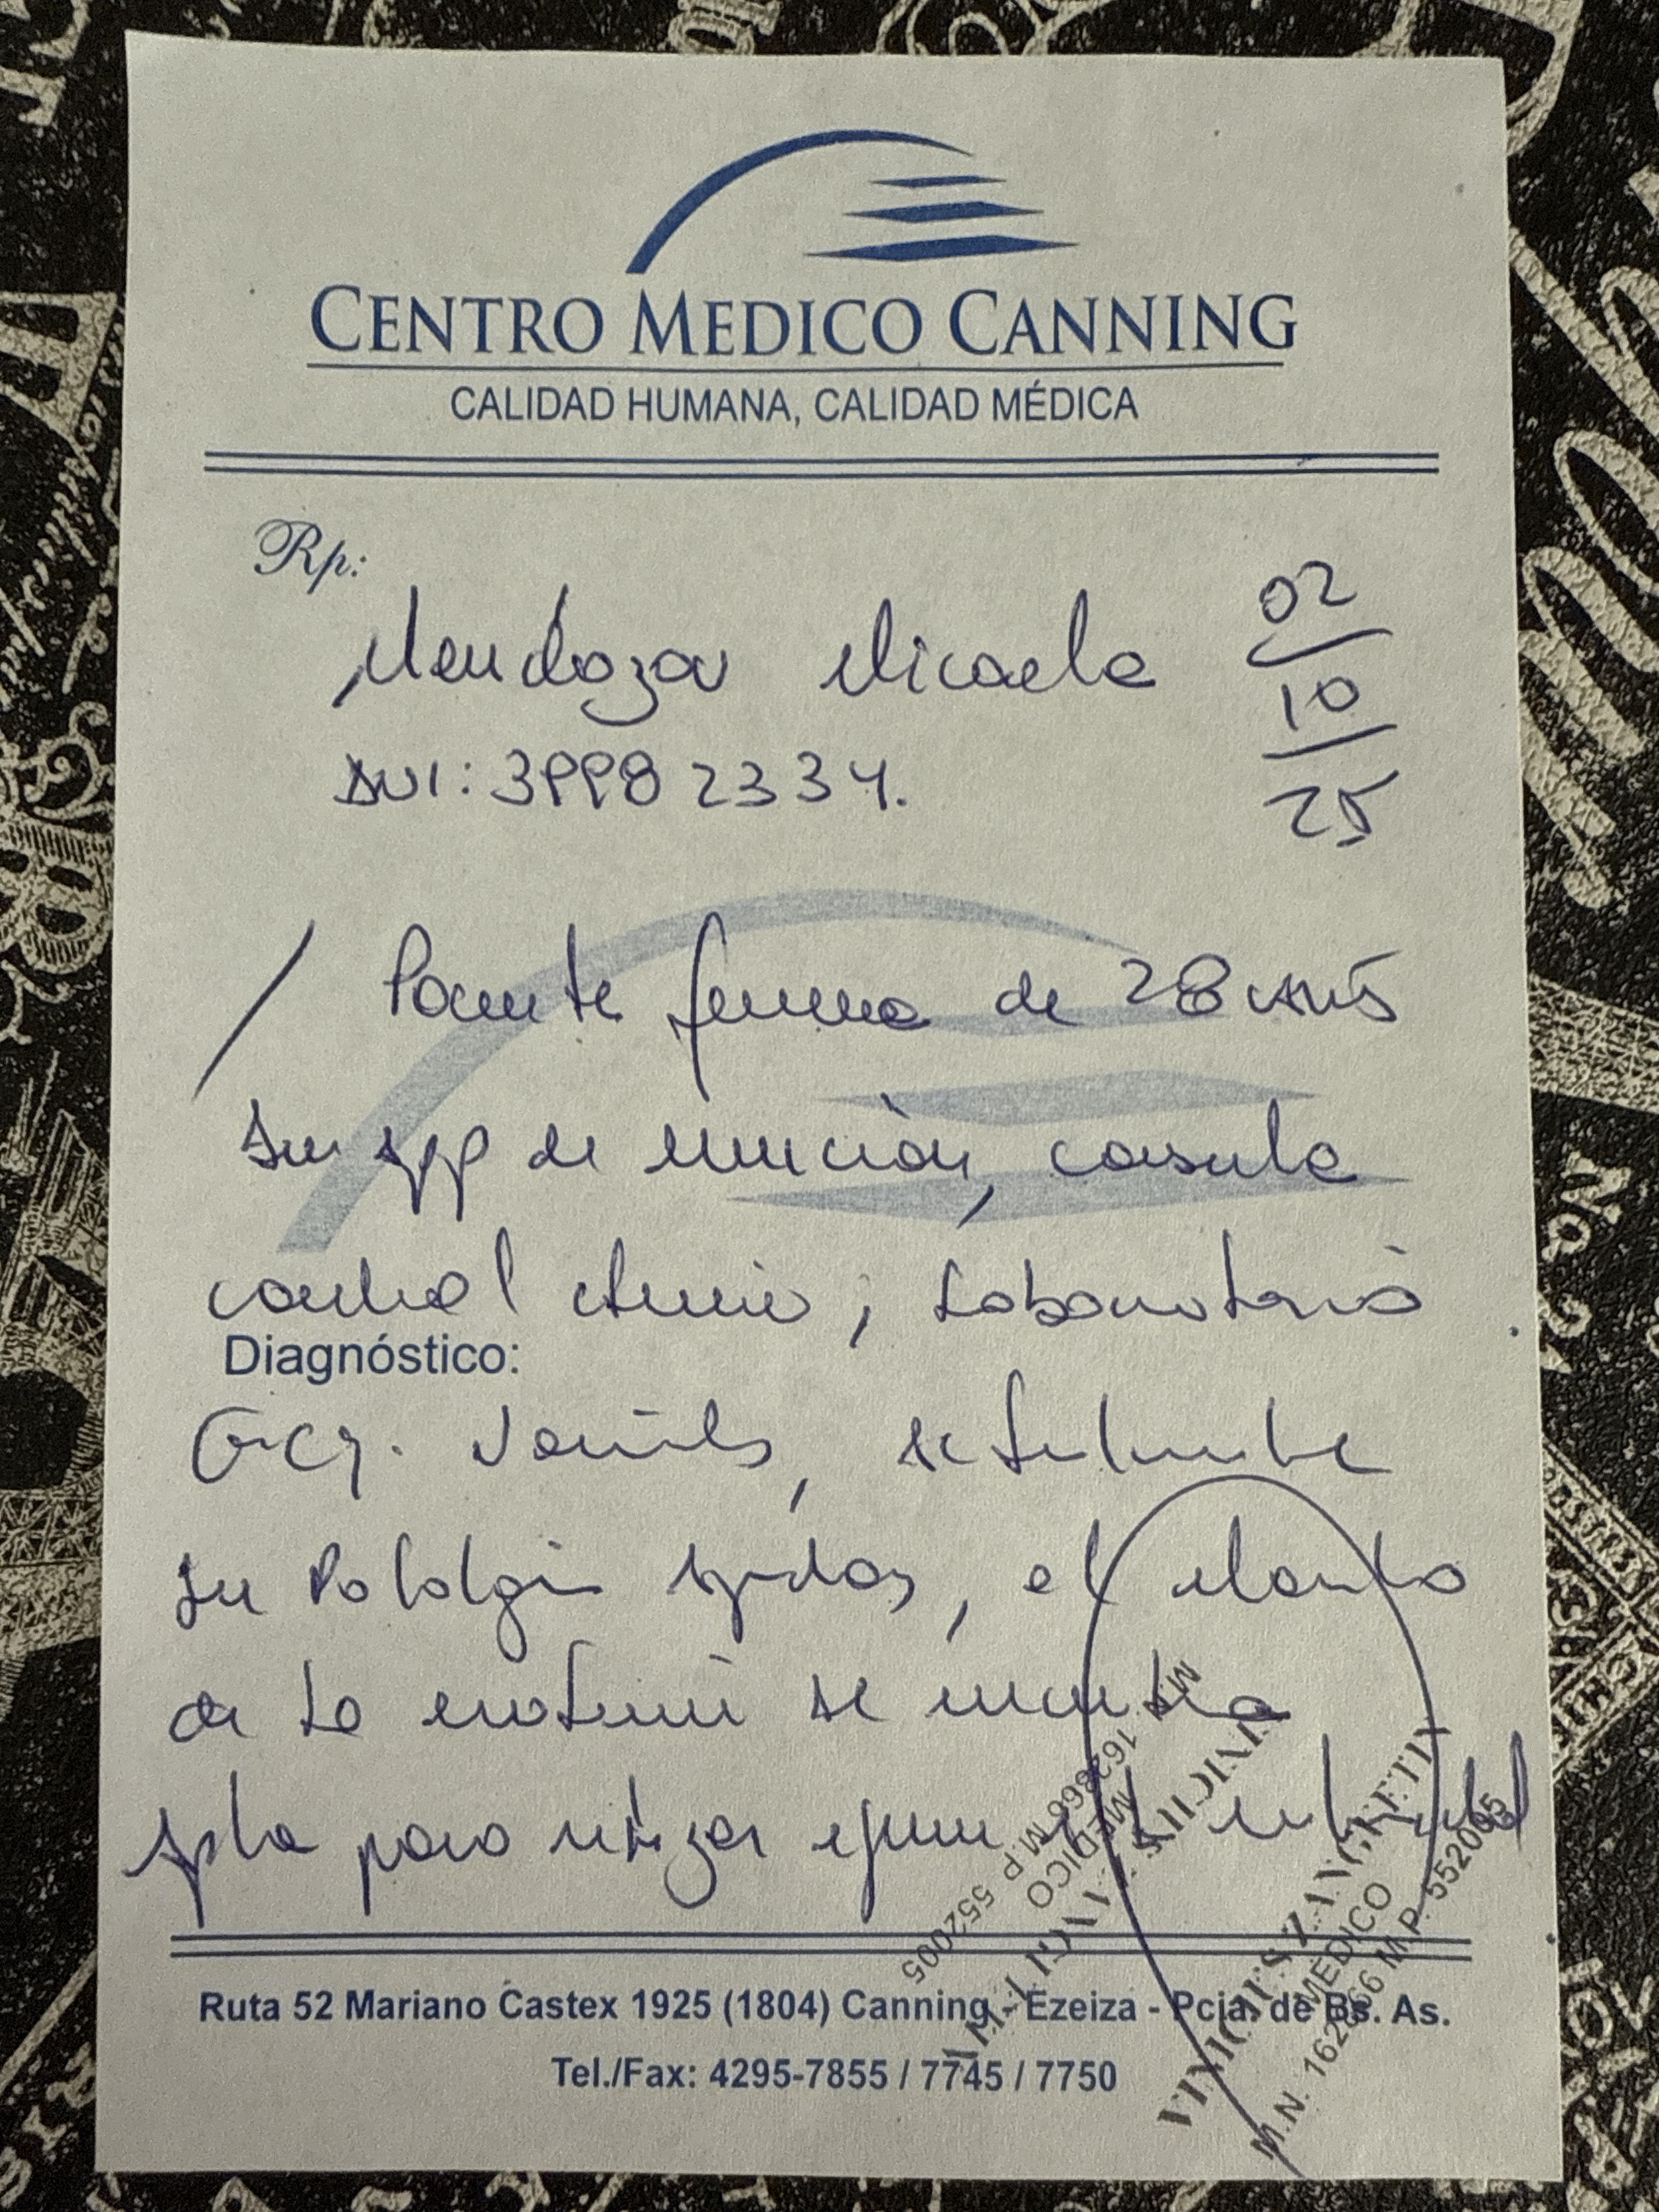 CENTRO MEDICO CANNING
CALIDAD HUMANA, CALIDAD MÉDICA
Rp:
Mendoza Micaela
02
10
25
DNI: 39982334.
/ Paciente femenina de 28 años
sin app de mención, consulta
control clínico; Laboratorio
Diagnóstico:
ECG. normales, actualmente
sin Patología aguda, al momento
de la
apta para realizar
VINICIUS ZANCHETTIN
MEDICO
M.P. 552005
Ruta 52 Mariano Castex 1925 (1804) Canning - Ezeiza - Pcia. de Bs. As.
Tel./Fax: 4295-7855 / 7745 / 7750